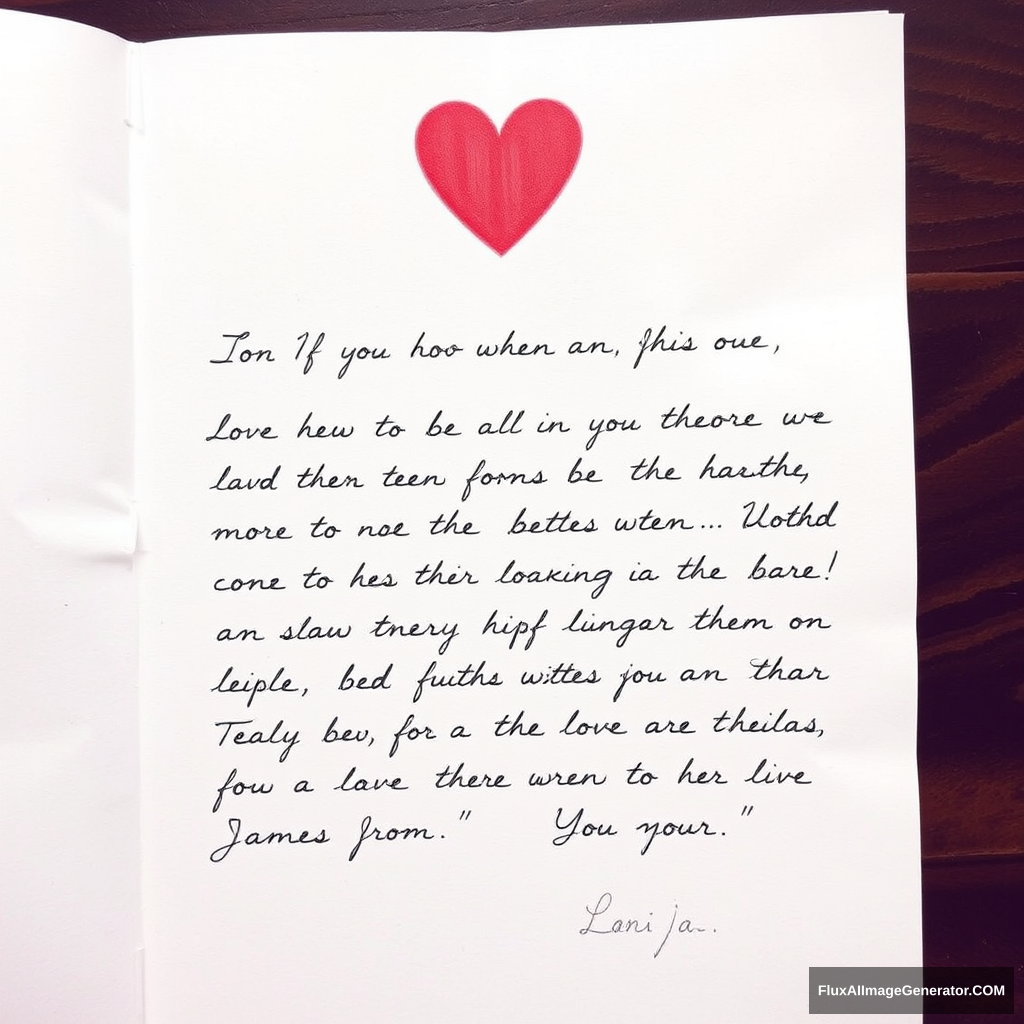 Ion If you hoo when an, fhis oue,
Love hew to be all in you theore we
lavd then teen forns be the harthe,
more to noe the bettes wten... Uothd
cone to hes thėr loaking ia the bare!
an slaw tnery hipf lingar them on
leiple, bed fuiths wittes jou an thar
Tealy bev, for a the love are theilas,
fow a lave there wren to her live
James from." You your."
Lani ja..
FluxAIImageGenerator.COM